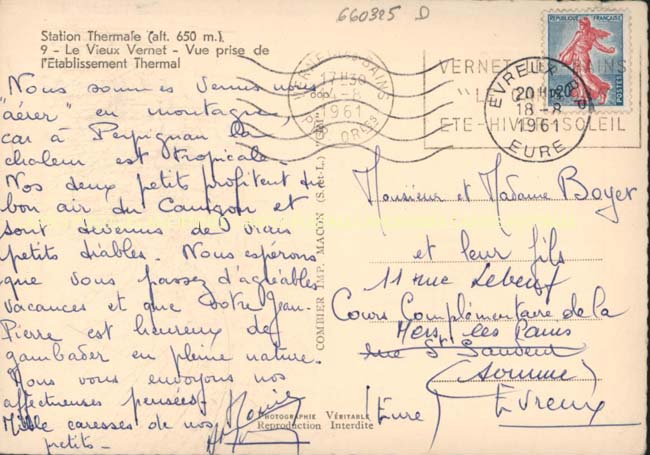 660325 D
Station Thermale (alt. 650 m.)
9 - Le Vieux Vernet - Vue prise de
l'Etablissement Thermal
Nous sommes venus nous
"aérer" en montagne,
car à Perpignan la
chaleur est tropicale.
Nos deux petits profitent du
bon air du Canigou et
sont devenus de vrais
petits diables. Nous espérons
que vous passez d'agréables
vacances et que votre Jean-
Pierre est heureux de
gambader en pleine nature.
Nous vous envoyons nos
affectueuses pensées
Mille caresses de nos
petits.
COMBIER IMP. MACON (S.-et-L.) "CIM"
PHOTOGRAPHIE VÉRITABLE
Reproduction Interdite
VERNET LES BAINS
17H30
4-8
1961
PYR. ORles
VERNET LES BAINS
"LE
ETE-HIVER-SOLEIL
EVREUX
20H
18-8
1961
EURE
REPUBLIQUE FRANÇAISE
0,20
POSTES
Monsieur et Madame Boyer
et leur fils
11 rue Lebeuf
Cours Complémentaire de la
Mers les Bains
rue St Sauveur
(Somme)
Evreux
(Eure)